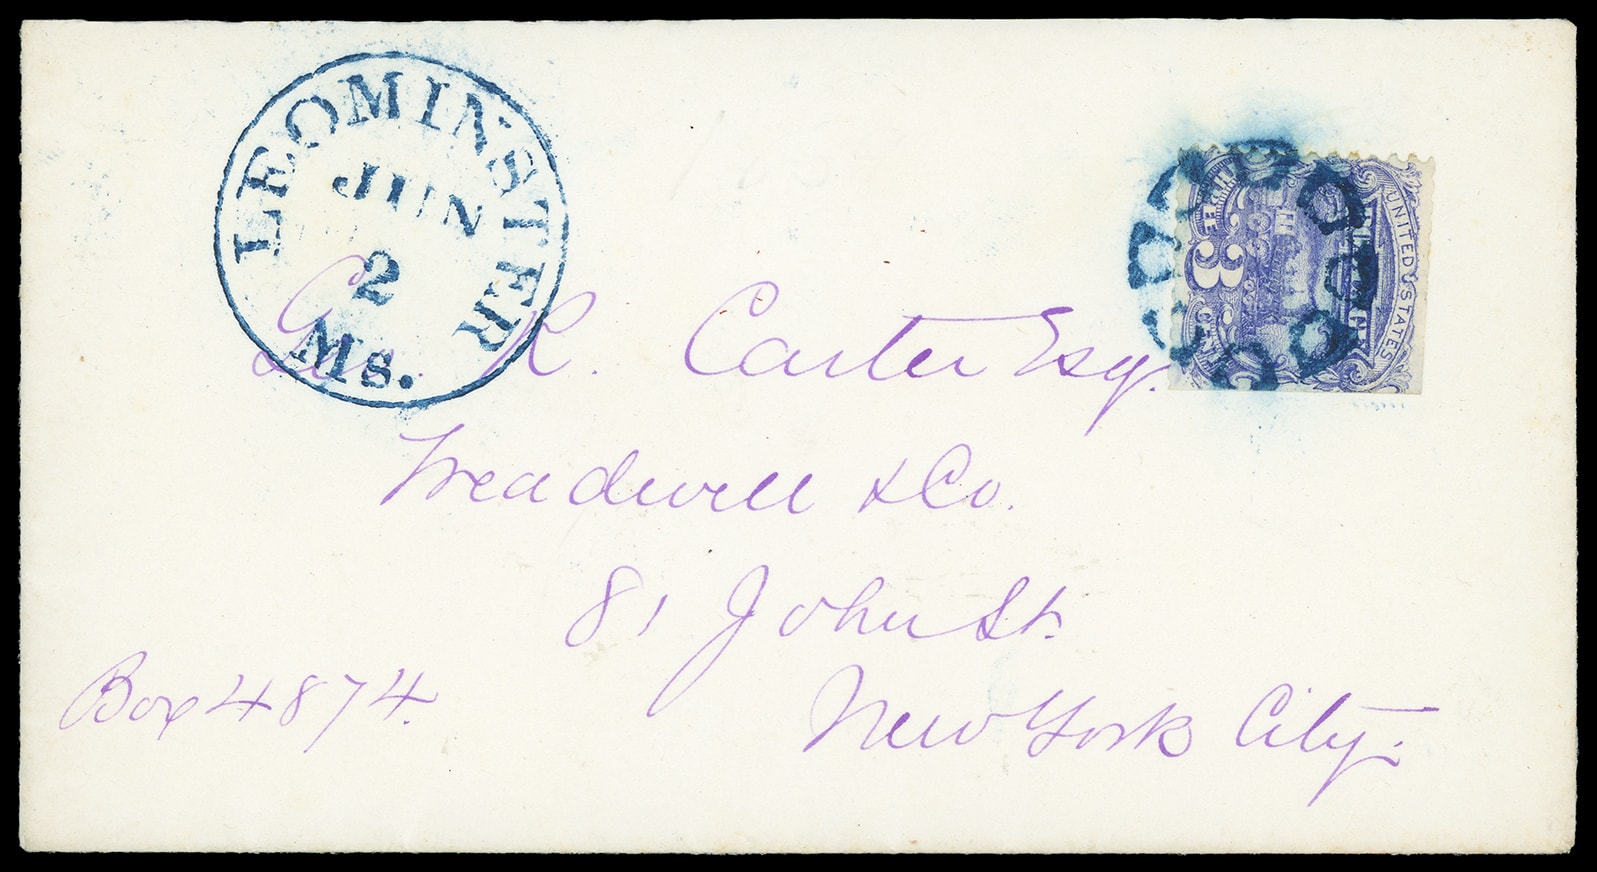 LEOMINSTER
JUN
2
Ms.
UNITED STATES
THREE 3 CENTS
Geo. R. Carter Esq.
Treadwell & Co.
81 John St.
New York City.
Box 4874.